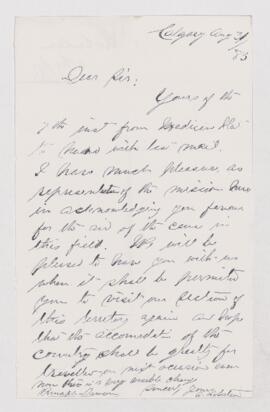 Calgary Aug 31
/ 83
Dear Sir:
Yours of the
7 the inst from Medicine Hat
to hand with last mail.
I have much pleasure, as
representative of the mission here
in acknowledging your favour
for the aid of the cause in
this field. We will be
pleased to have you with us
when it shall be permitted
you to visit our section of
this territory again and hope
that the accomodation of the
country shall be greatly for
travellers on next occasion
now this is a very
Sincerely yours